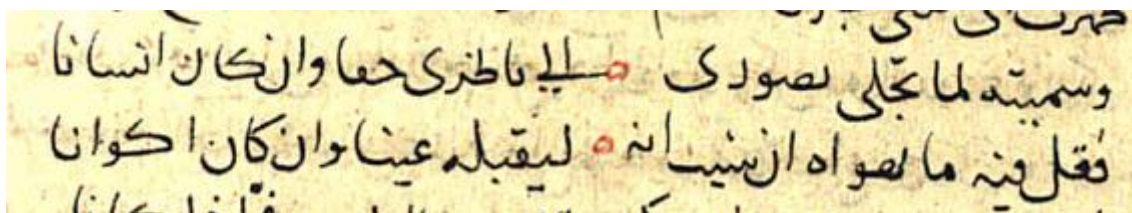 وسميته لما تجلى بصورتي ه الى ناظري حقا وان كان انسانا
فقل فيه ما تهواه ان شيت انه ه ليقبله عينا وان كان اكوانا